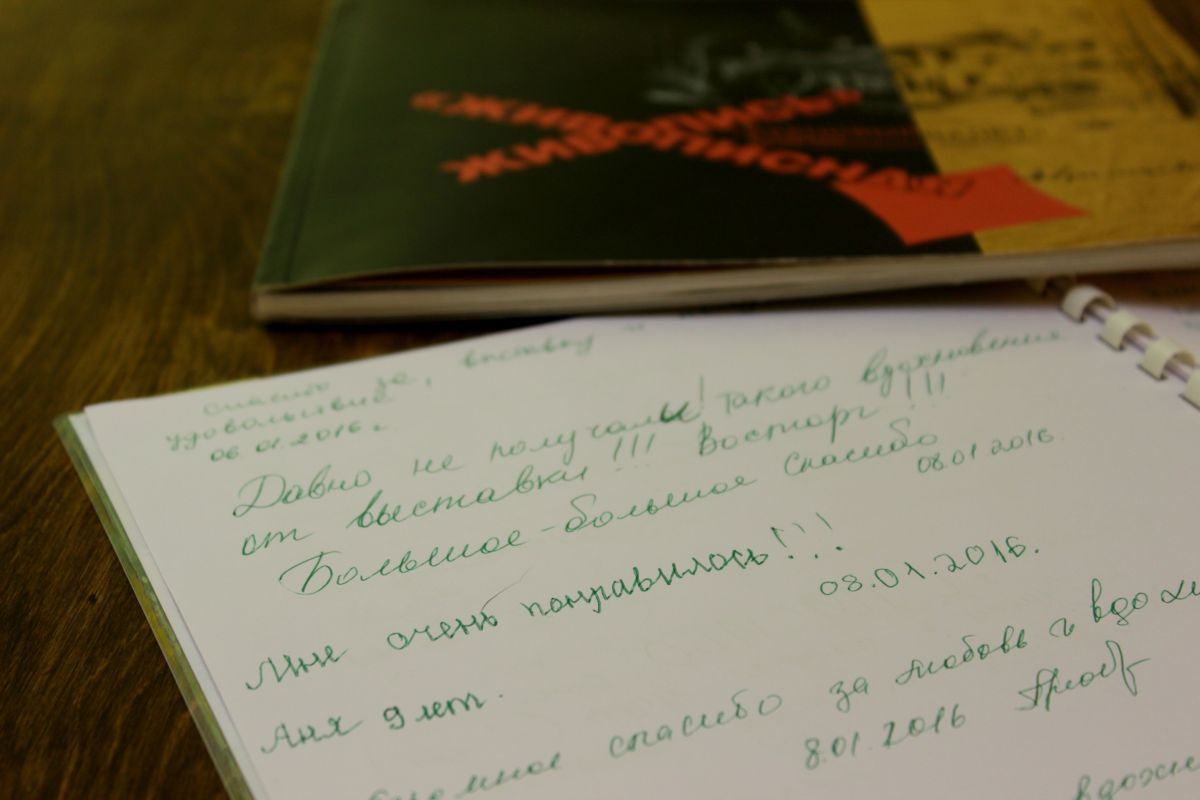 «ЖИВОПИСЬ»
ЖИВОПИСНАЯ
спасибо за, выставку и
удовольствие
06.01.2016 г.
Давно не получали! такого вдохновения
от выставки!!! Восторг!!!
Большое-большое спасибо
08.01 2016.
Мне очень понравилось!!!
08.01.2016.
Аня 9 лет.
спасибо за любовь и
8.01.2016